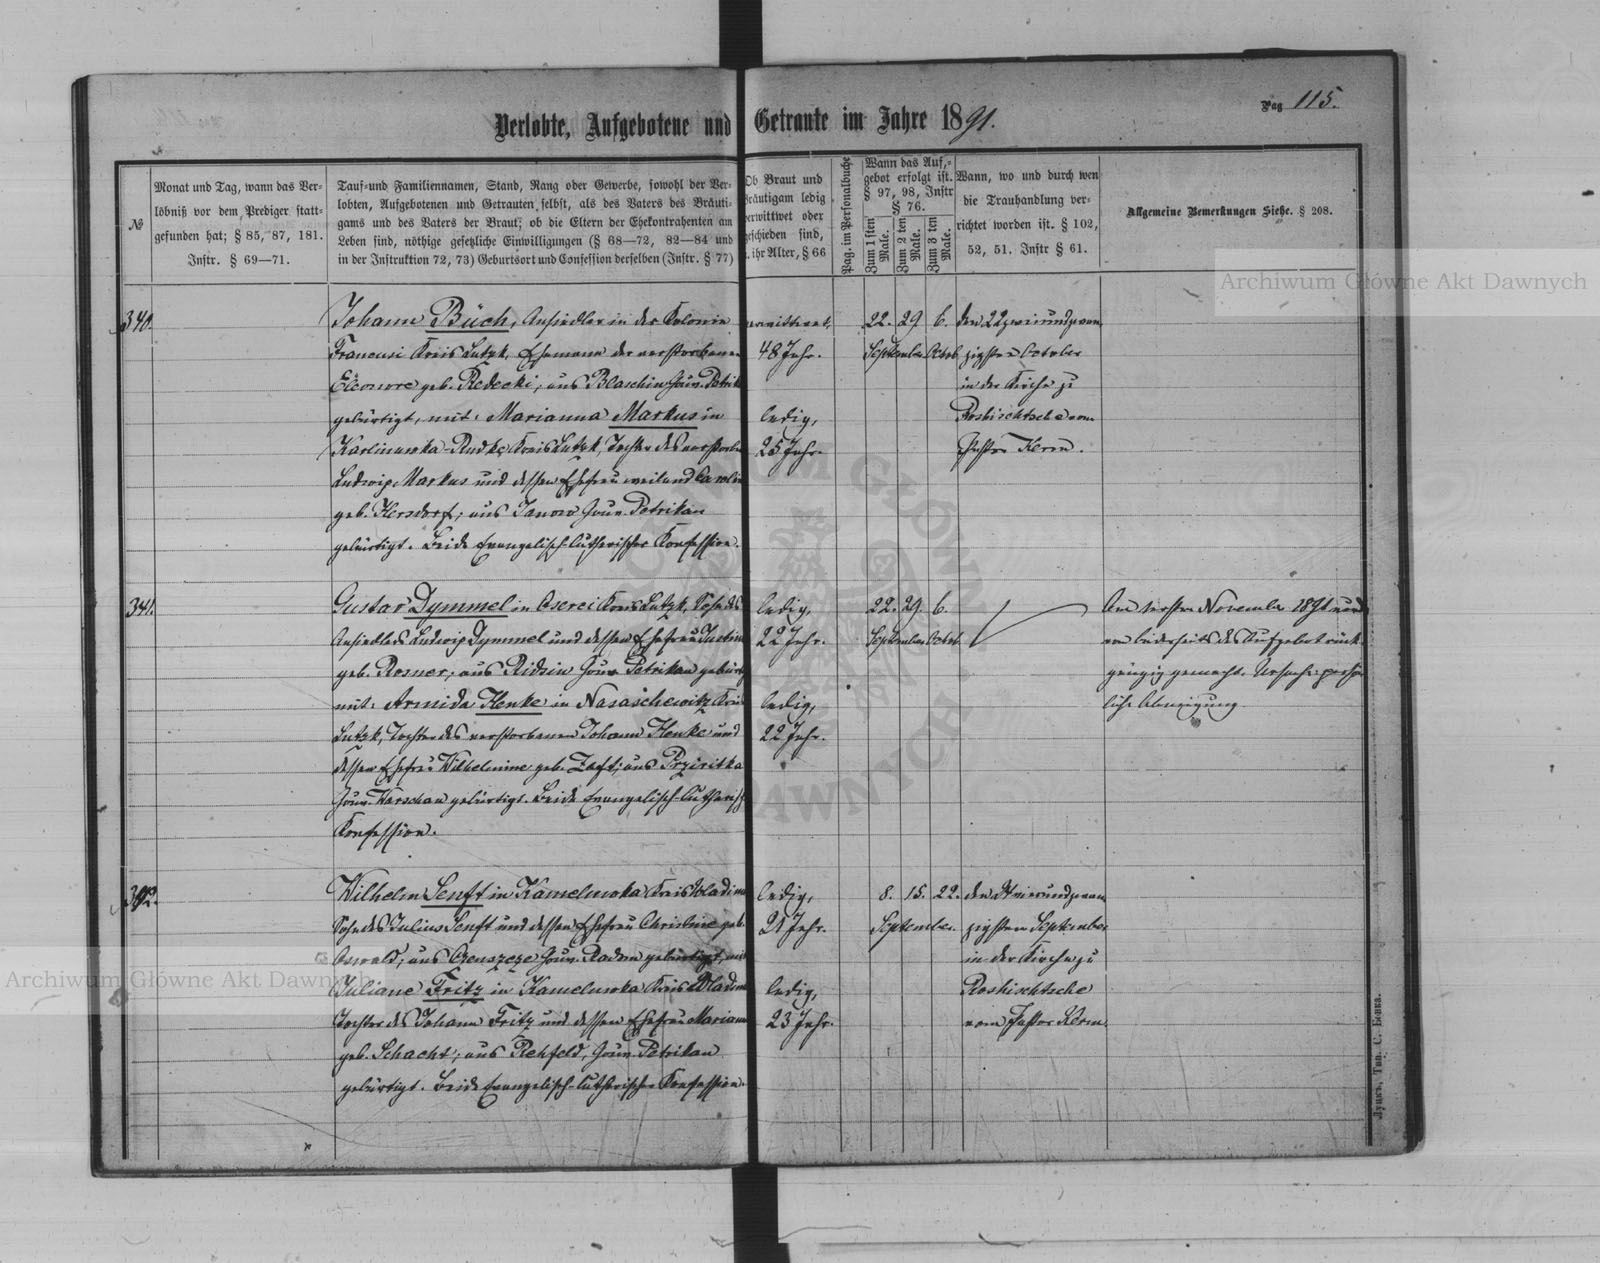 Pag 115.
Verlobte, Aufgebotene und Getraute im Jahre 1891.
№
Monat und Tag, wann das Ver-
löbniß vor dem Prediger statt-
gefunden hat; § 85, 87, 181.
Instr. § 69—71.
Tauf-und Familiennamen, Stand, Rang oder Gewerbe, sowohl der Ver-
lobten, Aufgebotenen und Getrauten selbst, als des Vaters des Bräuti-
gams und des Vaters der Braut; ob die Eltern der Ehekontrahenten am
Leben sind, nöthige gesetzliche Einwilligungen (§ 68—72, 82—84 und
in der Instruktion 72, 73) Geburtsort und Confession derselben (Instr. § 77)
Ob Braut und
Bräutigam ledig
verwittwet oder
geschieden sind,
ihr Alter, § 66
Pag. im Personalbuche
Wann das Auf-
gebot erfolgt ist.
§ 97, 98, Instr
§ 76.
Zum 1 sten Male.
Zum 2 ten Male.
Zum 3 ten Male.
Wann, wo und durch wen
die Trauhandlung ver-
richtet worden ist. § 102,
52, 51. Instr § 61.
Allgemeine Bemerkungen Siehe. § 208.
340.
Johann Büch, Ansiedler in der Kolonie
Francusi Kreis Lutzk, Ehemann der verstorbenen
Eleonore geb. Redecki, aus Blaschin Gouv. Petrik
gebürtigt, mit: Marianna Markus in
Karlinuwka-Rudke Kreis Lutzk, Tochter des verstorbe
Ludwig Markus und dessen Ehefrau weiland Carolin
geb. Hersdorf, aus Janow Gouv. Petrikau
gebürtigt. Beide Evangelisch-lutherischer Konfession.
verwittwet,
48 Jahr.
ledig,
25 Jahr.
22. 29 6.
September Octob
den 22 zweiundzwan
zigsten October
in der Kirche zu
Roshischtsche vom
Pastor Kerm.
341.
Gustav Dymmel in Oserci Kreis Lutzk, Sohn des
Ansiedlers Ludwig Dymmel und dessen Ehefrau Justine
geb. Rosner, aus Ridzin Gouv. Petrikau gebürtig
mit: Armida Henke in Nasaschewitz Kreis
Lutzk, Tochter des verstorbenen Johann Henke und
dessen Ehefrau Wilhelmine geb. Zaft, aus Pryziritka
Gouv. Warschau gebürtigt. Beide Evangelisch-lutherisch
Konfession.
ledig,
22 Jahr.
ledig,
22 Jahr.
22. 29. 6.
September Octob
Am ersten November 1891 wurd
von beiderseits das Aufgebot rück-
gängig gemacht. Ursache: persön
liche Abneigung.
342.
Wilhelm Senft in Kamelnwka Kreis Wladimir
Sohn des Julius Senft und dessen Ehefrau Christine geb.
Oswald, aus Gouv. Radom gebürtigt, mit
Juliane Fritz in Kamelnwka Kreis Wladimir
Tochter des Johann Fritz und dessen Ehefrau Mariann
geb. Schacht, aus Rehfeld, Gouv. Petrikau
gebürtigt. Beide Evangelisch-lutherischer Konfession.
ledig,
21 Jahr.
ledig,
23 Jahr.
8. 15. 22.
September.
den 24 vierundzwan
zigsten September
in der Kirche zu
Roshischtsche
vom Pastor Kerm
Луцкъ, Тип. С. Бонка.
Archiwum Główne Akt Dawnych
Archiwum Główne Akt Dawnych